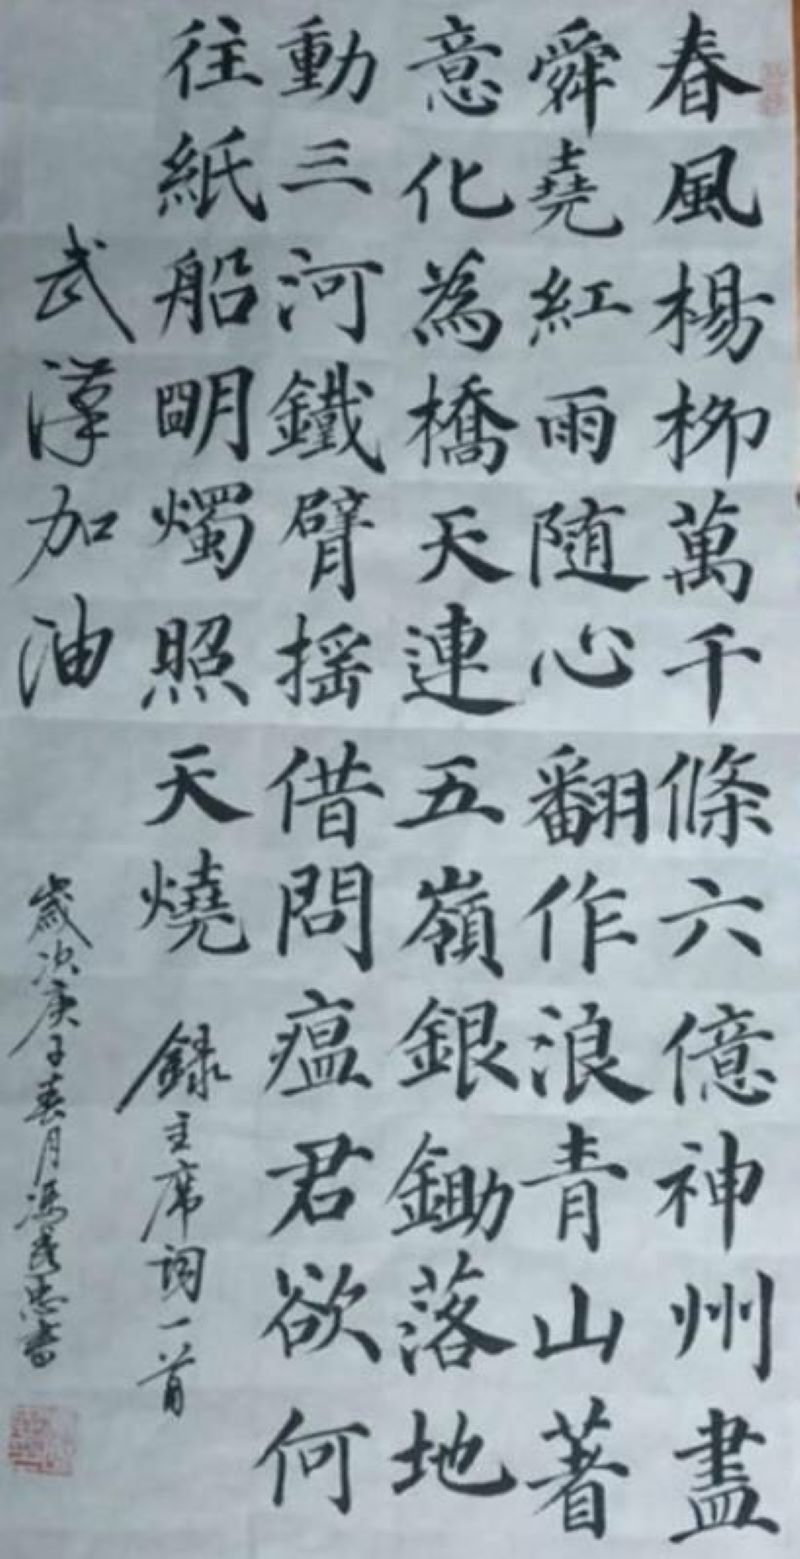 春風楊柳萬千條六億神州盡
舜堯紅雨随心翻作浪青山著
意化為橋天連五嶺銀鋤落地
動三河鐵臂摇借問瘟君欲何
往紙船明燭照天燒 録主席词一首
武漢加油
歲次庚子春月馮 忠書